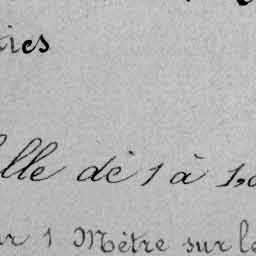 ies
lle de 1 à 1,
r 1 Mètre sur le